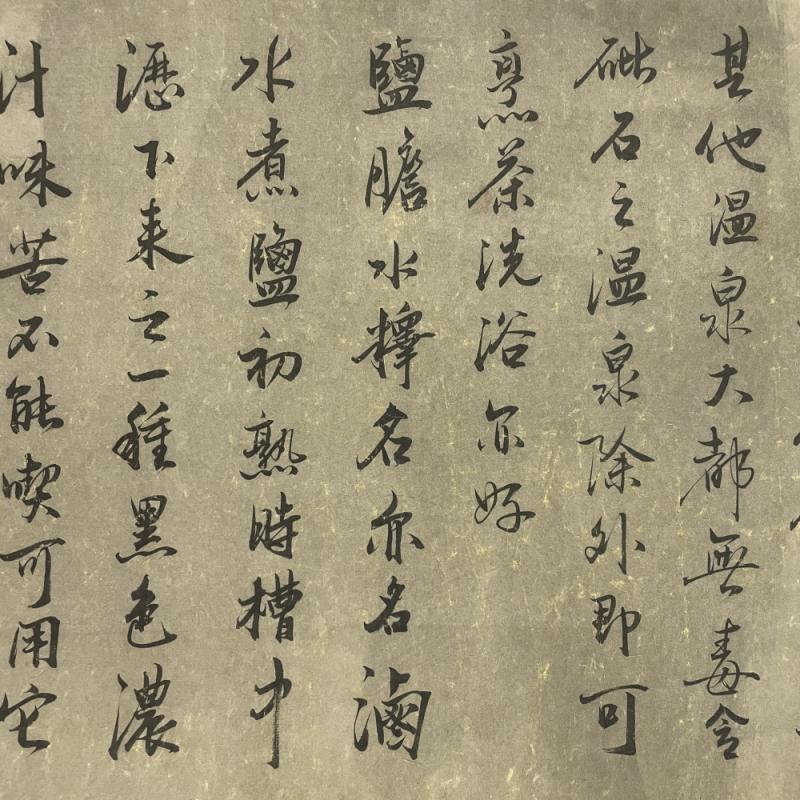 其他温泉大都無毒含
砒石之温泉除外即可
烹茶洗浴亦好
鹽膽水釋名亦名滷
水煮鹽初熟時槽中
瀝下来之一種黑色濃
汁味苦不能喫可用它